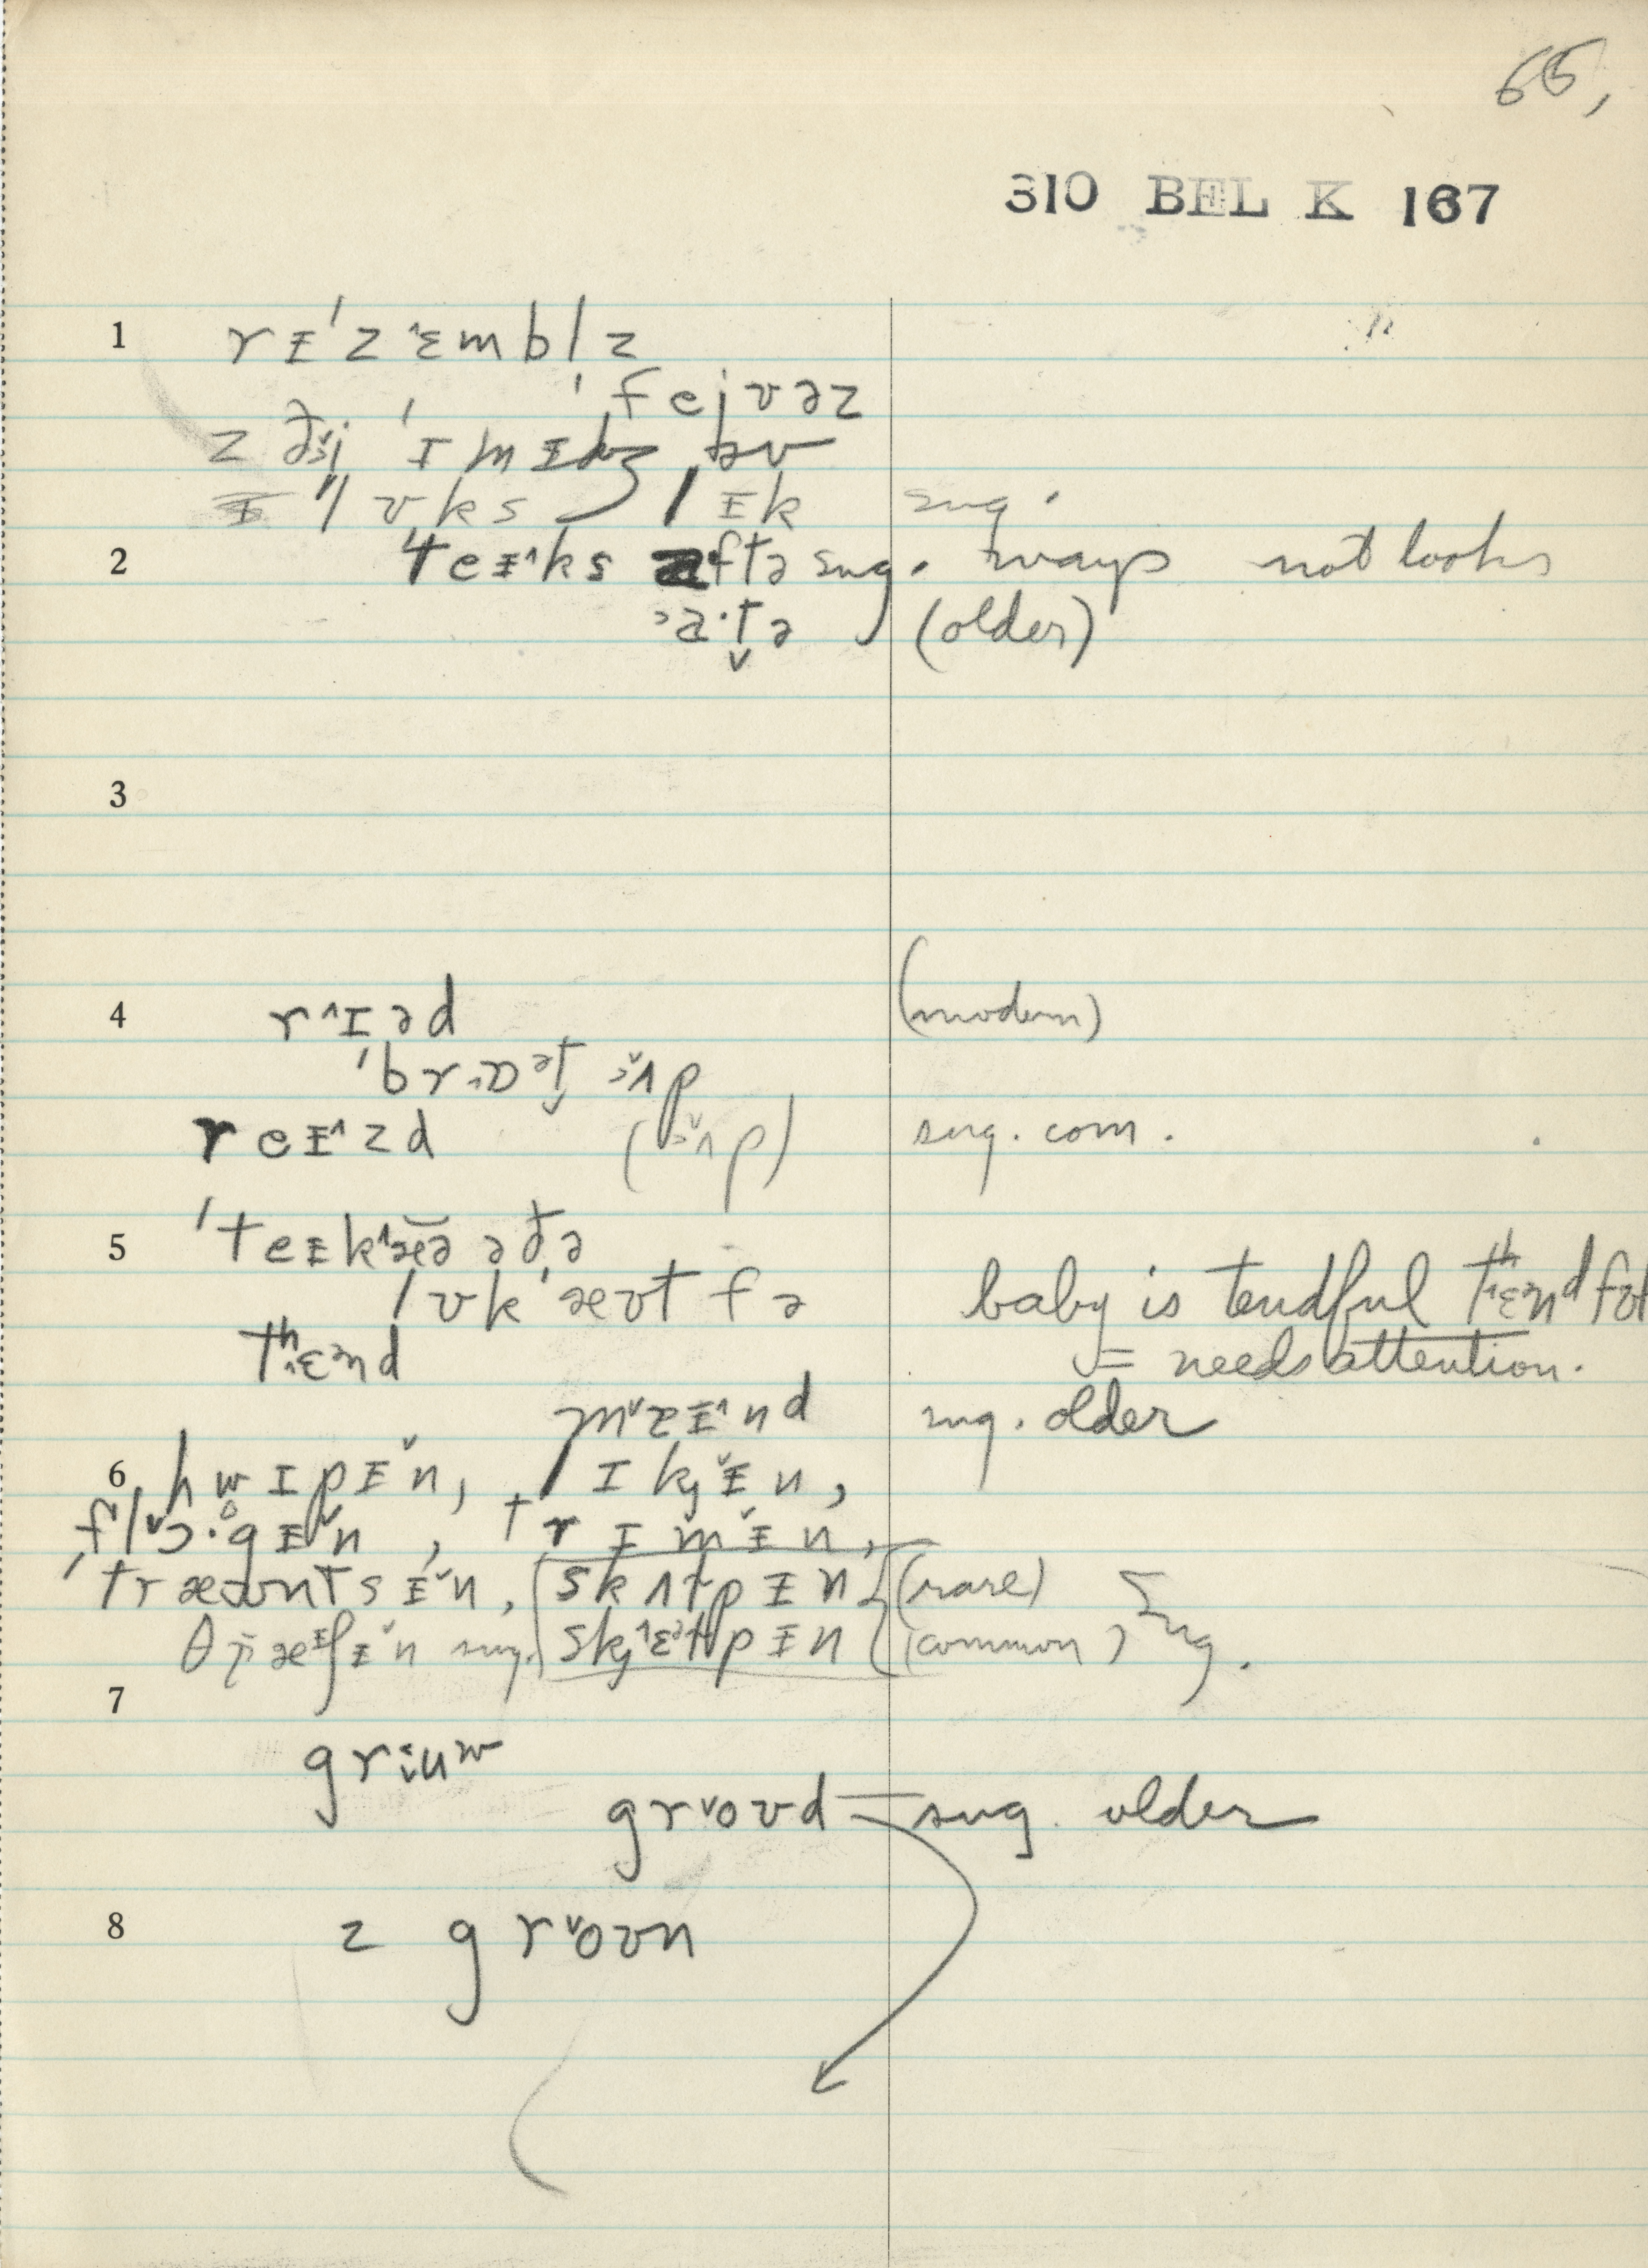 65,
310 BEL K 167
1 rᵻˈzɛmblz
ˈfejvəz
z ðə ˈɪmᵻdʒ əv
lʊks lᵻk sug.
2 teᵻks aftə sug. ways not looks
a·tə (older)
3
4 rɪəd (modern)
ˈbrɒət ʌp
reᵻzd (ʌp) sug. com.
5 ˈteᵻkæə əðə
lʊkˈæʊt fə baby is tendful tʰɛnd fəl
tʰɛnd = needs attention.
mᵻnd sug. older
6 hwɪpᵻn, lɪkᵻn,
flɔ·gᵻn, trɪmᵻn,
ˈtræʊntsᵻn, skʌlpᵻn (rare)
θræʃᵻn sug. skɛlpᵻn (common) Sug.
7
griuʷ
groʊd sug. older
8 z groʊn